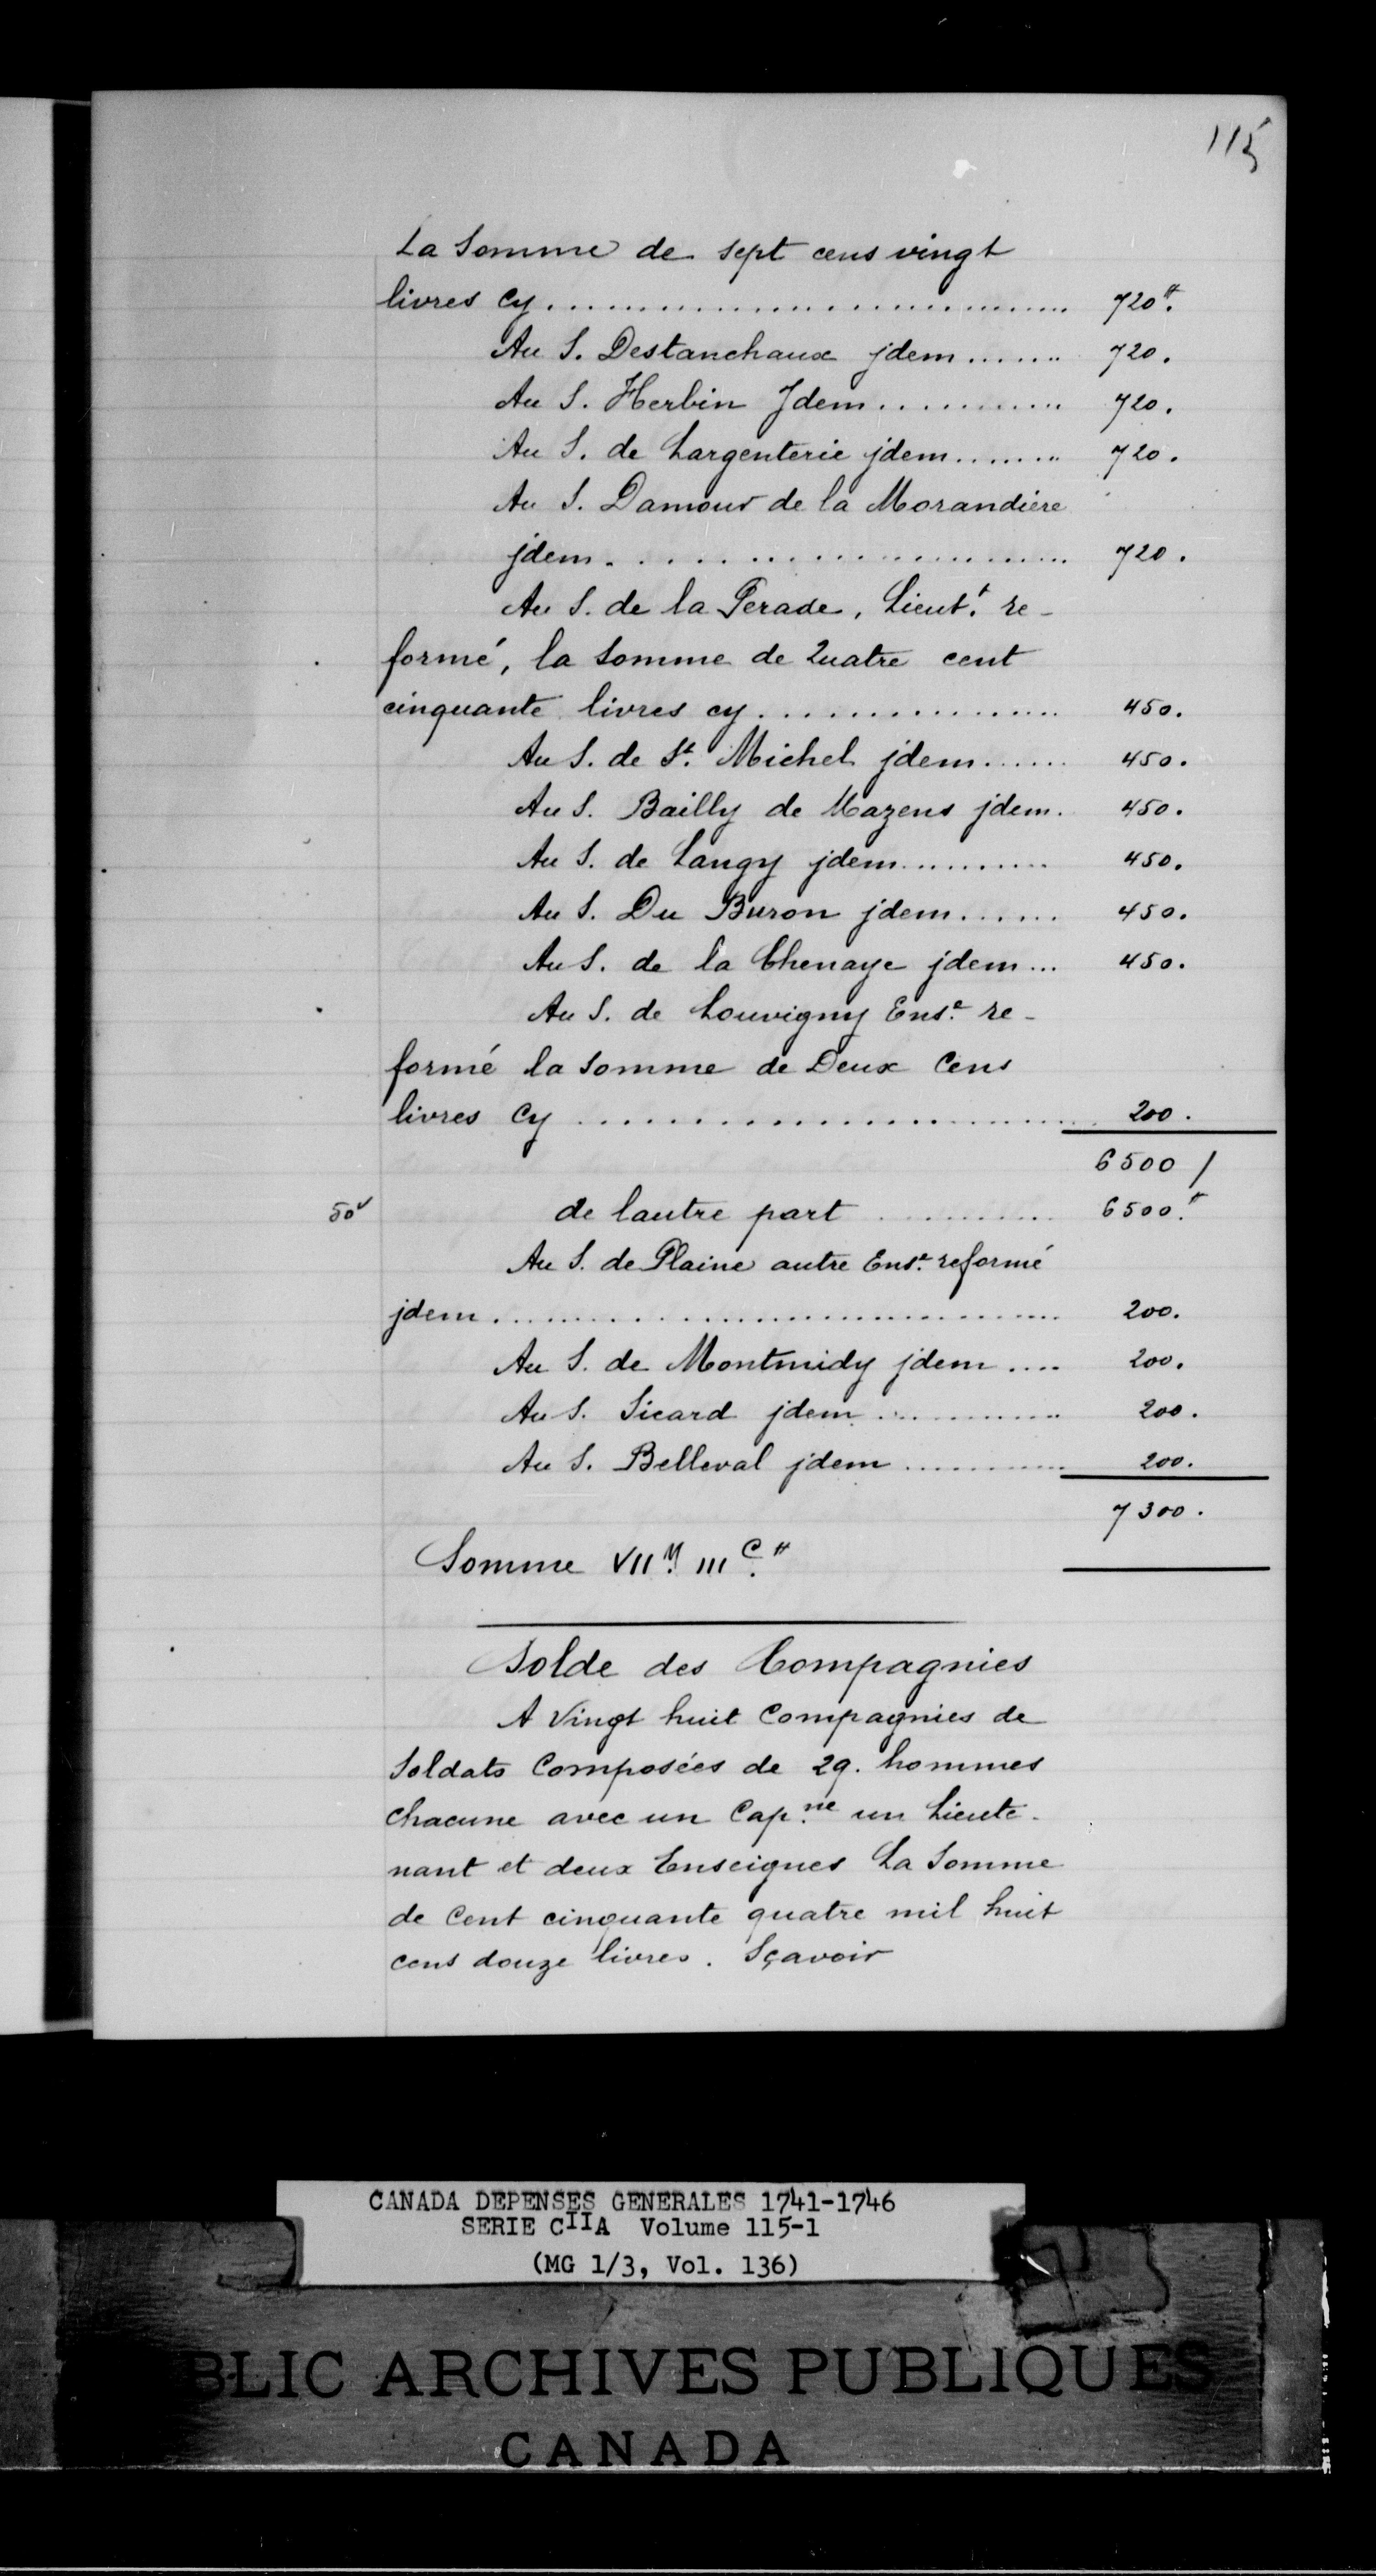 115
La Somme de sept cens vingt
livres Cy .............................. 720tt.
Au S. Destanchaux jdem ....... 720.
Au S. Herbin Jdem ............ 720.
Au S. de Largenterie jdem ........ 720.
Au S. Damour de la Morandiere
jdem ........................ 720.
Au S. de la Perade, Lieut.t re-
formé, la somme de Quatre cent
cinquante livres cy ................ 450.
Au S. de St. Michel jdem ...... 450.
Au S. Bailly de Mazens jdem. 450.
Au S. de Langy jdem .......... 450.
Au S. Du Buron jdem ...... 450.
Au S. de la Chenaye jdem ... 450.
Au S. de Louvigny Ens.e re-
formé la somme de Deux Cens
livres Cy ........................ 200.
6500 /
50v de lautre part ............ 6500.tt
Au S. de Plaine autre Ens.e reformé
jdem .............................. 200.
Au S. de Montmidy jdem .... 200.
Au S. Sicard jdem ............ 200.
Au S. Belleval jdem ............ 200.
7300.
Somme VII.M III.C tt
Solde des Compagnies
A Vingt huit Compagnies de
Soldats Composées de 29. hommes
chacune avec un Cap.ne un Lieute-
nant et deux Enseignes La Somme
de Cent cinquante quatre mil huit
cens douze livres. Sçavoir
CANADA DEPENSES GENERALES 1741-1746
SERIE CIIA Volume 115-1
(MG 1/3, Vol. 136)
BLIC ARCHIVES PUBLIQUES
CANADA